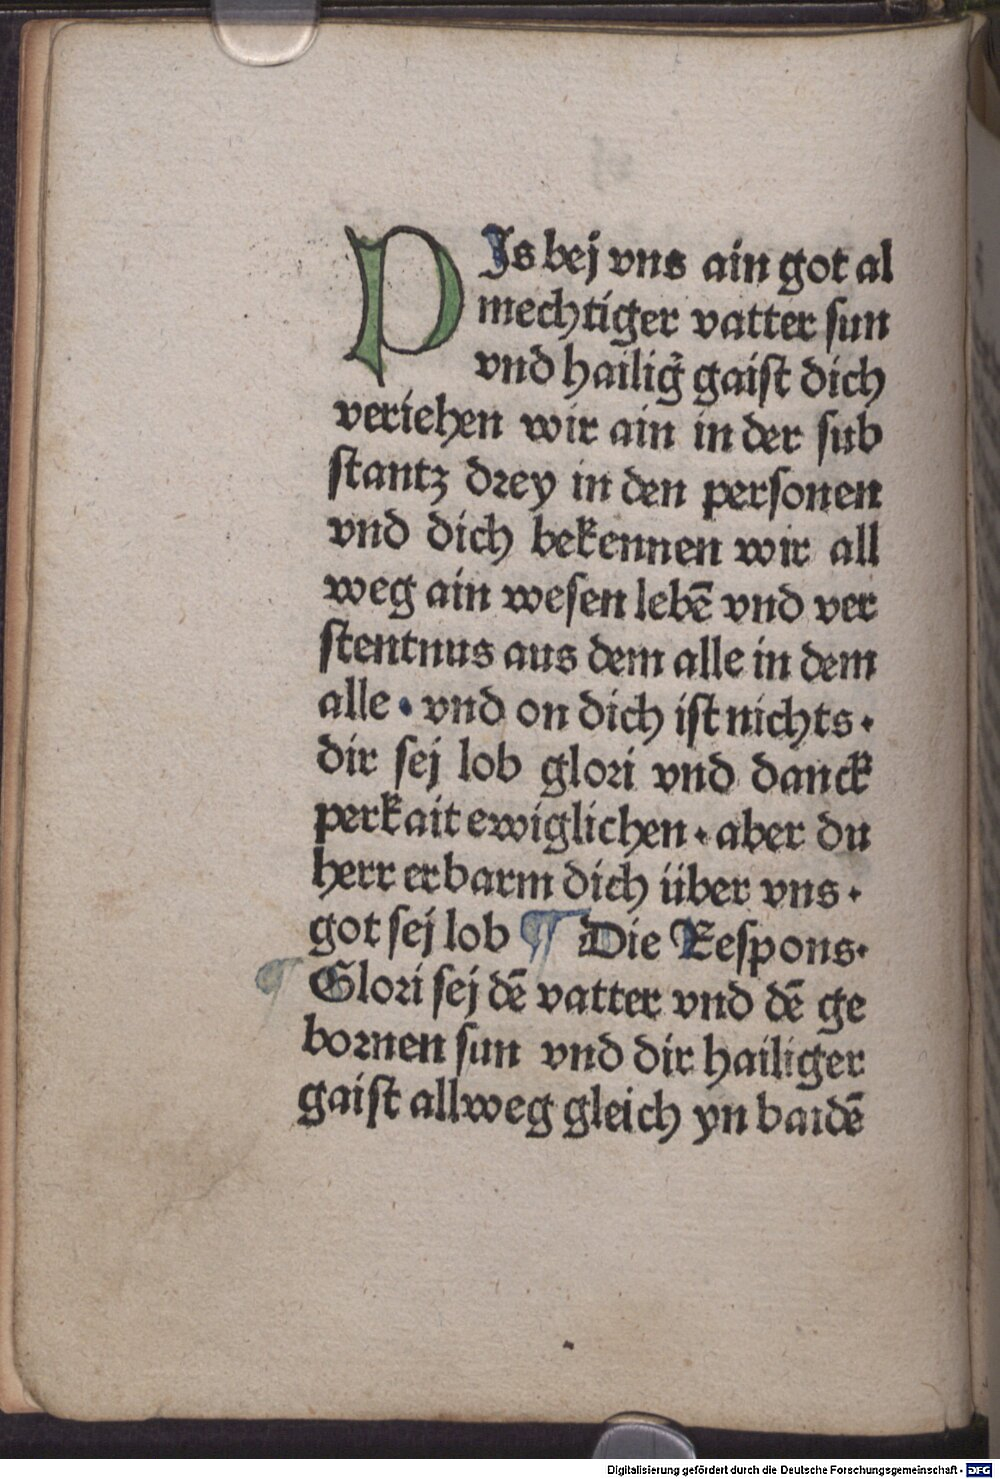 PJs bej vns ain got al
mechtiger vatter ſun
vnd hailig᷑ gaiſt dich
veriehen wir ain in der ſub
ſtantz drey in den perſonen
vnd dich bekennen wir all
weg ain weſen lebē vnd ver
ſtentnus aus dem alle in dem
alle · vnd on dich iſt nichts ·
dir ſej lob glori vnd danck
perkait ewiglichen · aber du
herr erbarm dich über vns ·
got ſej lob ¶ Die Reſpons·
¶ Glori ſej dē vatter vnd dē ge
bornen ſun vnd dir hailiger
gaiſt allweg gleich yn baidē
Digitalisierung gefördert durch die Deutsche Forschungsgemeinschaft - DFG